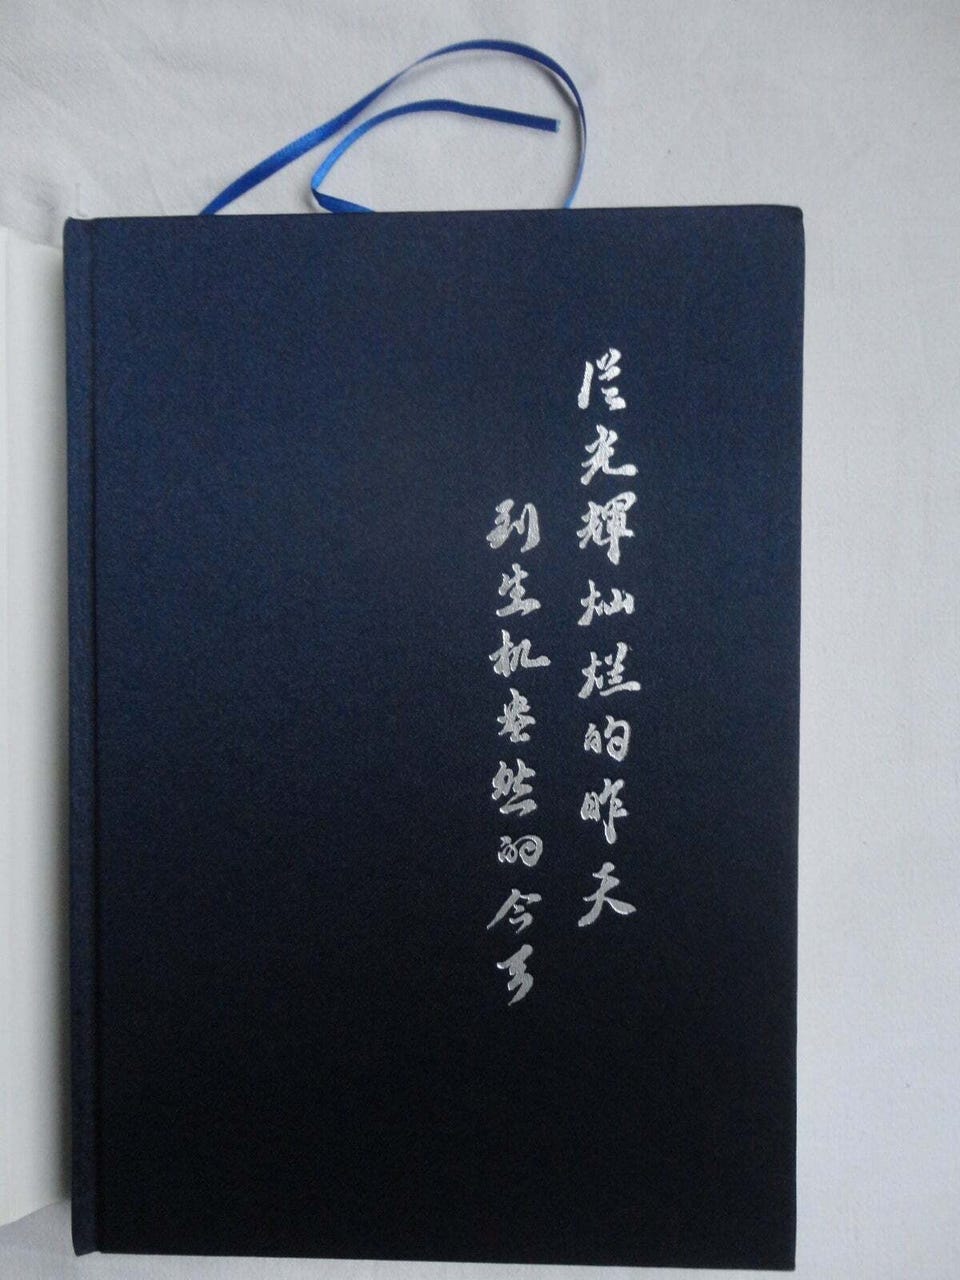 从光辉灿烂的昨天
到生机盎然的今天